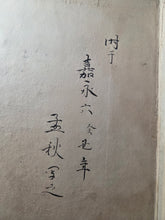 时于
嘉永六癸丑年
孟秋写之